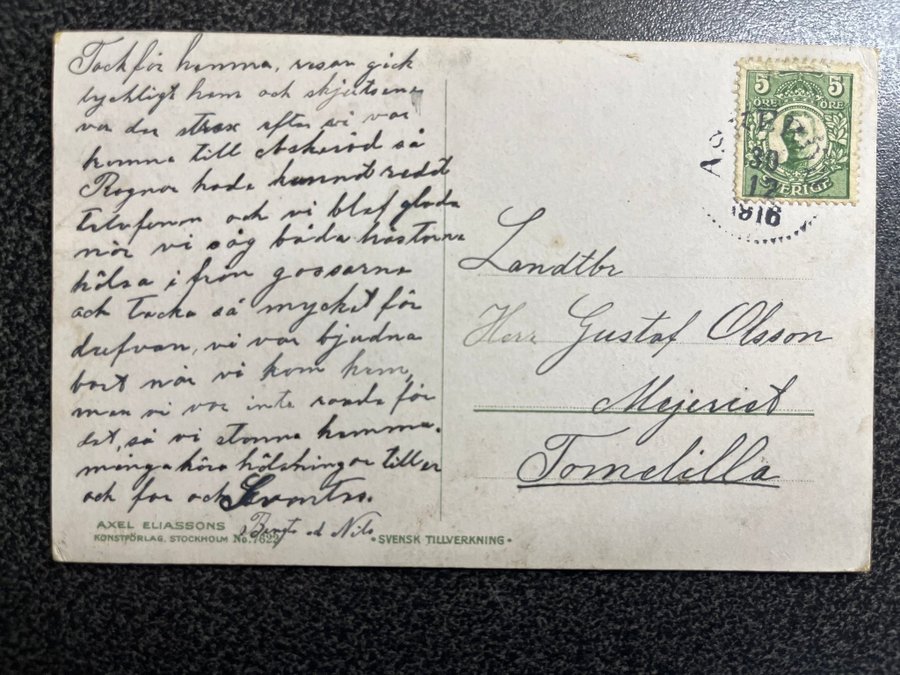 Tack för hemma, resan gick
lyckligt hem och skjutsen
var der strax efter vi var
komna till Askeröd så
Ragnar hade hunnit redt
telefonen och vi blef glada
när vi såg båda hästarna
hälsa ifrån gossarna
och tacka så mycket för
drefvan, vi var bjudna
bort när vi kom hem,
men vi var inte raada för
det, så vi stanna hemma.
många kära hälsningar till er
och far och
Bengta o Nils
AXEL ELIASSONS
KONSTFÖRLAG. STOCKHOLM No. 7622
• SVENSK TILLVERKNING •
5 5
ÖRE ÖRE
SVERIGE
30
12
1916
Landtbr
Herr Gustaf Olsson
Mejerist
Tomelilla